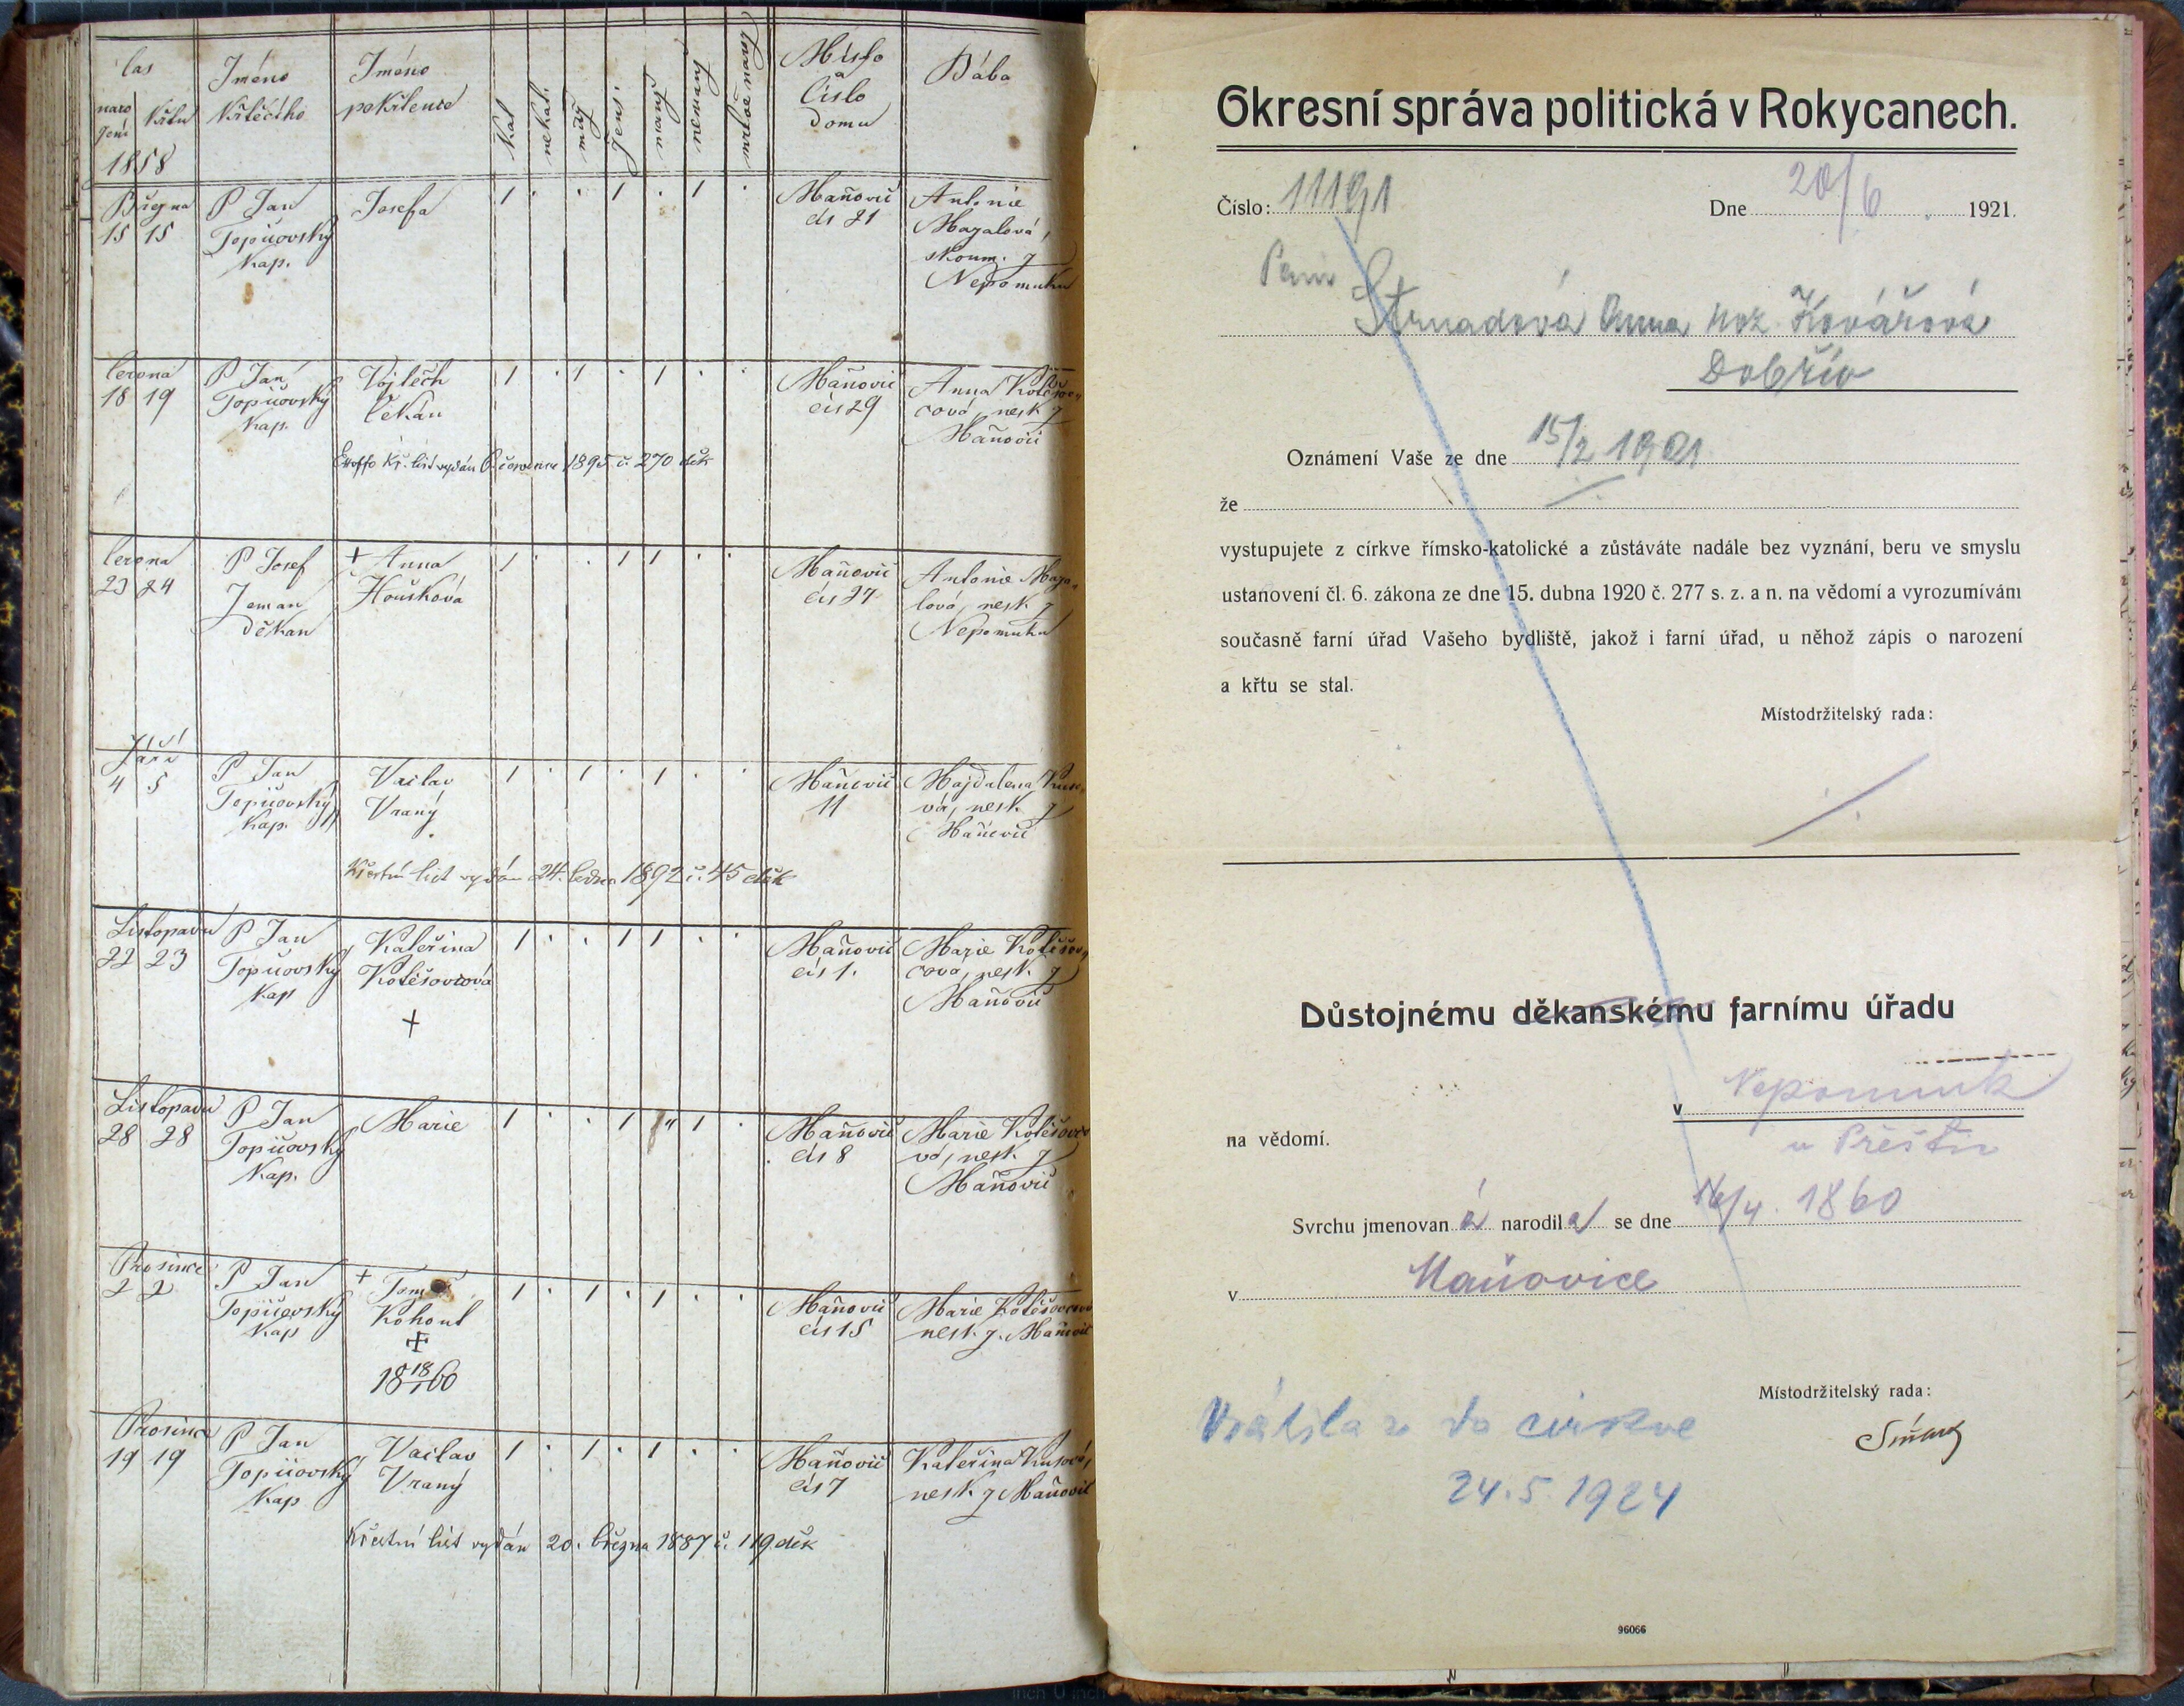 čas
narození
křtu
Jméno
křtícího
Jméno
pokřtence
Kat
nekat.
muž
žens.
manž
nemanž
mrtvě naroz
Místo
a
číslo
domu
Bába
1858
Března
15 15
P Jan
Topičovský
Kap.
Josefa
1 . . 1 . 1 .
Maňovic
čís 21
Antonie
Mazalová,
zkoum. z
Nepomuku
Června
18 19
P Jan
Topičovský
Kap.
Vojtěch
Čekan
1 . 1 . 1 . .
Maňovic
čís 29
Anna
cová, nesk z
Maňovic
Kř. list vydán 1895 č. 270 děk
Června
23 24
P Josef
Zeman
děkan
+ Anna
Houšková
1 . . 1 1 . .
Maňovic
čís 27
Antonie Maza-
lová, nesk z
Nepomuku
Září
4 5
P Jan
Topičovský
Kap.
Vaclav
Vraný
1 . 1 . 1 . .
Maňovic
11
Majdalena
vá, nesk. z
Maňovic
Křestní list vydán 24. ledna 1892 č. 45 děk
Listopadu
22 23
P Jan
Topičovský
Kap
Kateřina
Kotěšovcová
+
1 . . 1 1 . .
Maňovic
čís 1.
Marie Kotěšov-
cová, nesk. z
Maňovic
Listopadu
28 28
P Jan
Topičovský
Kap.
Marie
1 . . 1 " 1 .
Maňovic
čís 8
Marie Kotěšovco-
vá, nesk. z
Maňovic
Prosince
2 2
P Jan
Topičovský
Kap
+ Tomáš
Kohout
+
18 18/1 60
1 . 1 . 1 . .
Maňovic
čís 15
Marie Kotěšovcová
nesk. z. Maňovic
Prosince
19 19
P Jan
Topičovský
Kap
Vaclav
Vraný
1 . 1 . 1 . .
Maňovic
čís 7
Kateřina
nesk. z Maňovic
Křestní list vydán 20. března 1887 č. 119 děk
Okresní správa politická v Rokycanech.
Číslo: 11191
Dne 20/6 . 1921.
Paní
Strnadová Anna roz. Kovářová
Dobřív
Oznámení Vaše ze dne 15/2 1921
že
vystupujete z církve římsko-katolické a zůstáváte nadále bez vyznání, beru ve smyslu
ustanovení čl. 6. zákona ze dne 15. dubna 1920 č. 277 s. z. a n. na vědomí a vyrozumívám
současně farní úřad Vašeho bydliště, jakož i farní úřad, u něhož zápis o narození
a křtu se stal.
Místodržitelský rada:
Důstojnému děkanskému farnímu úřadu
v Nepomuk
u Přeštic
na vědomí.
Svrchu jmenovaná narodila se dne 16/4. 1860
v Maňovice
Místodržitelský rada:
Vrátila se do církve
24. 5. 1924
96066